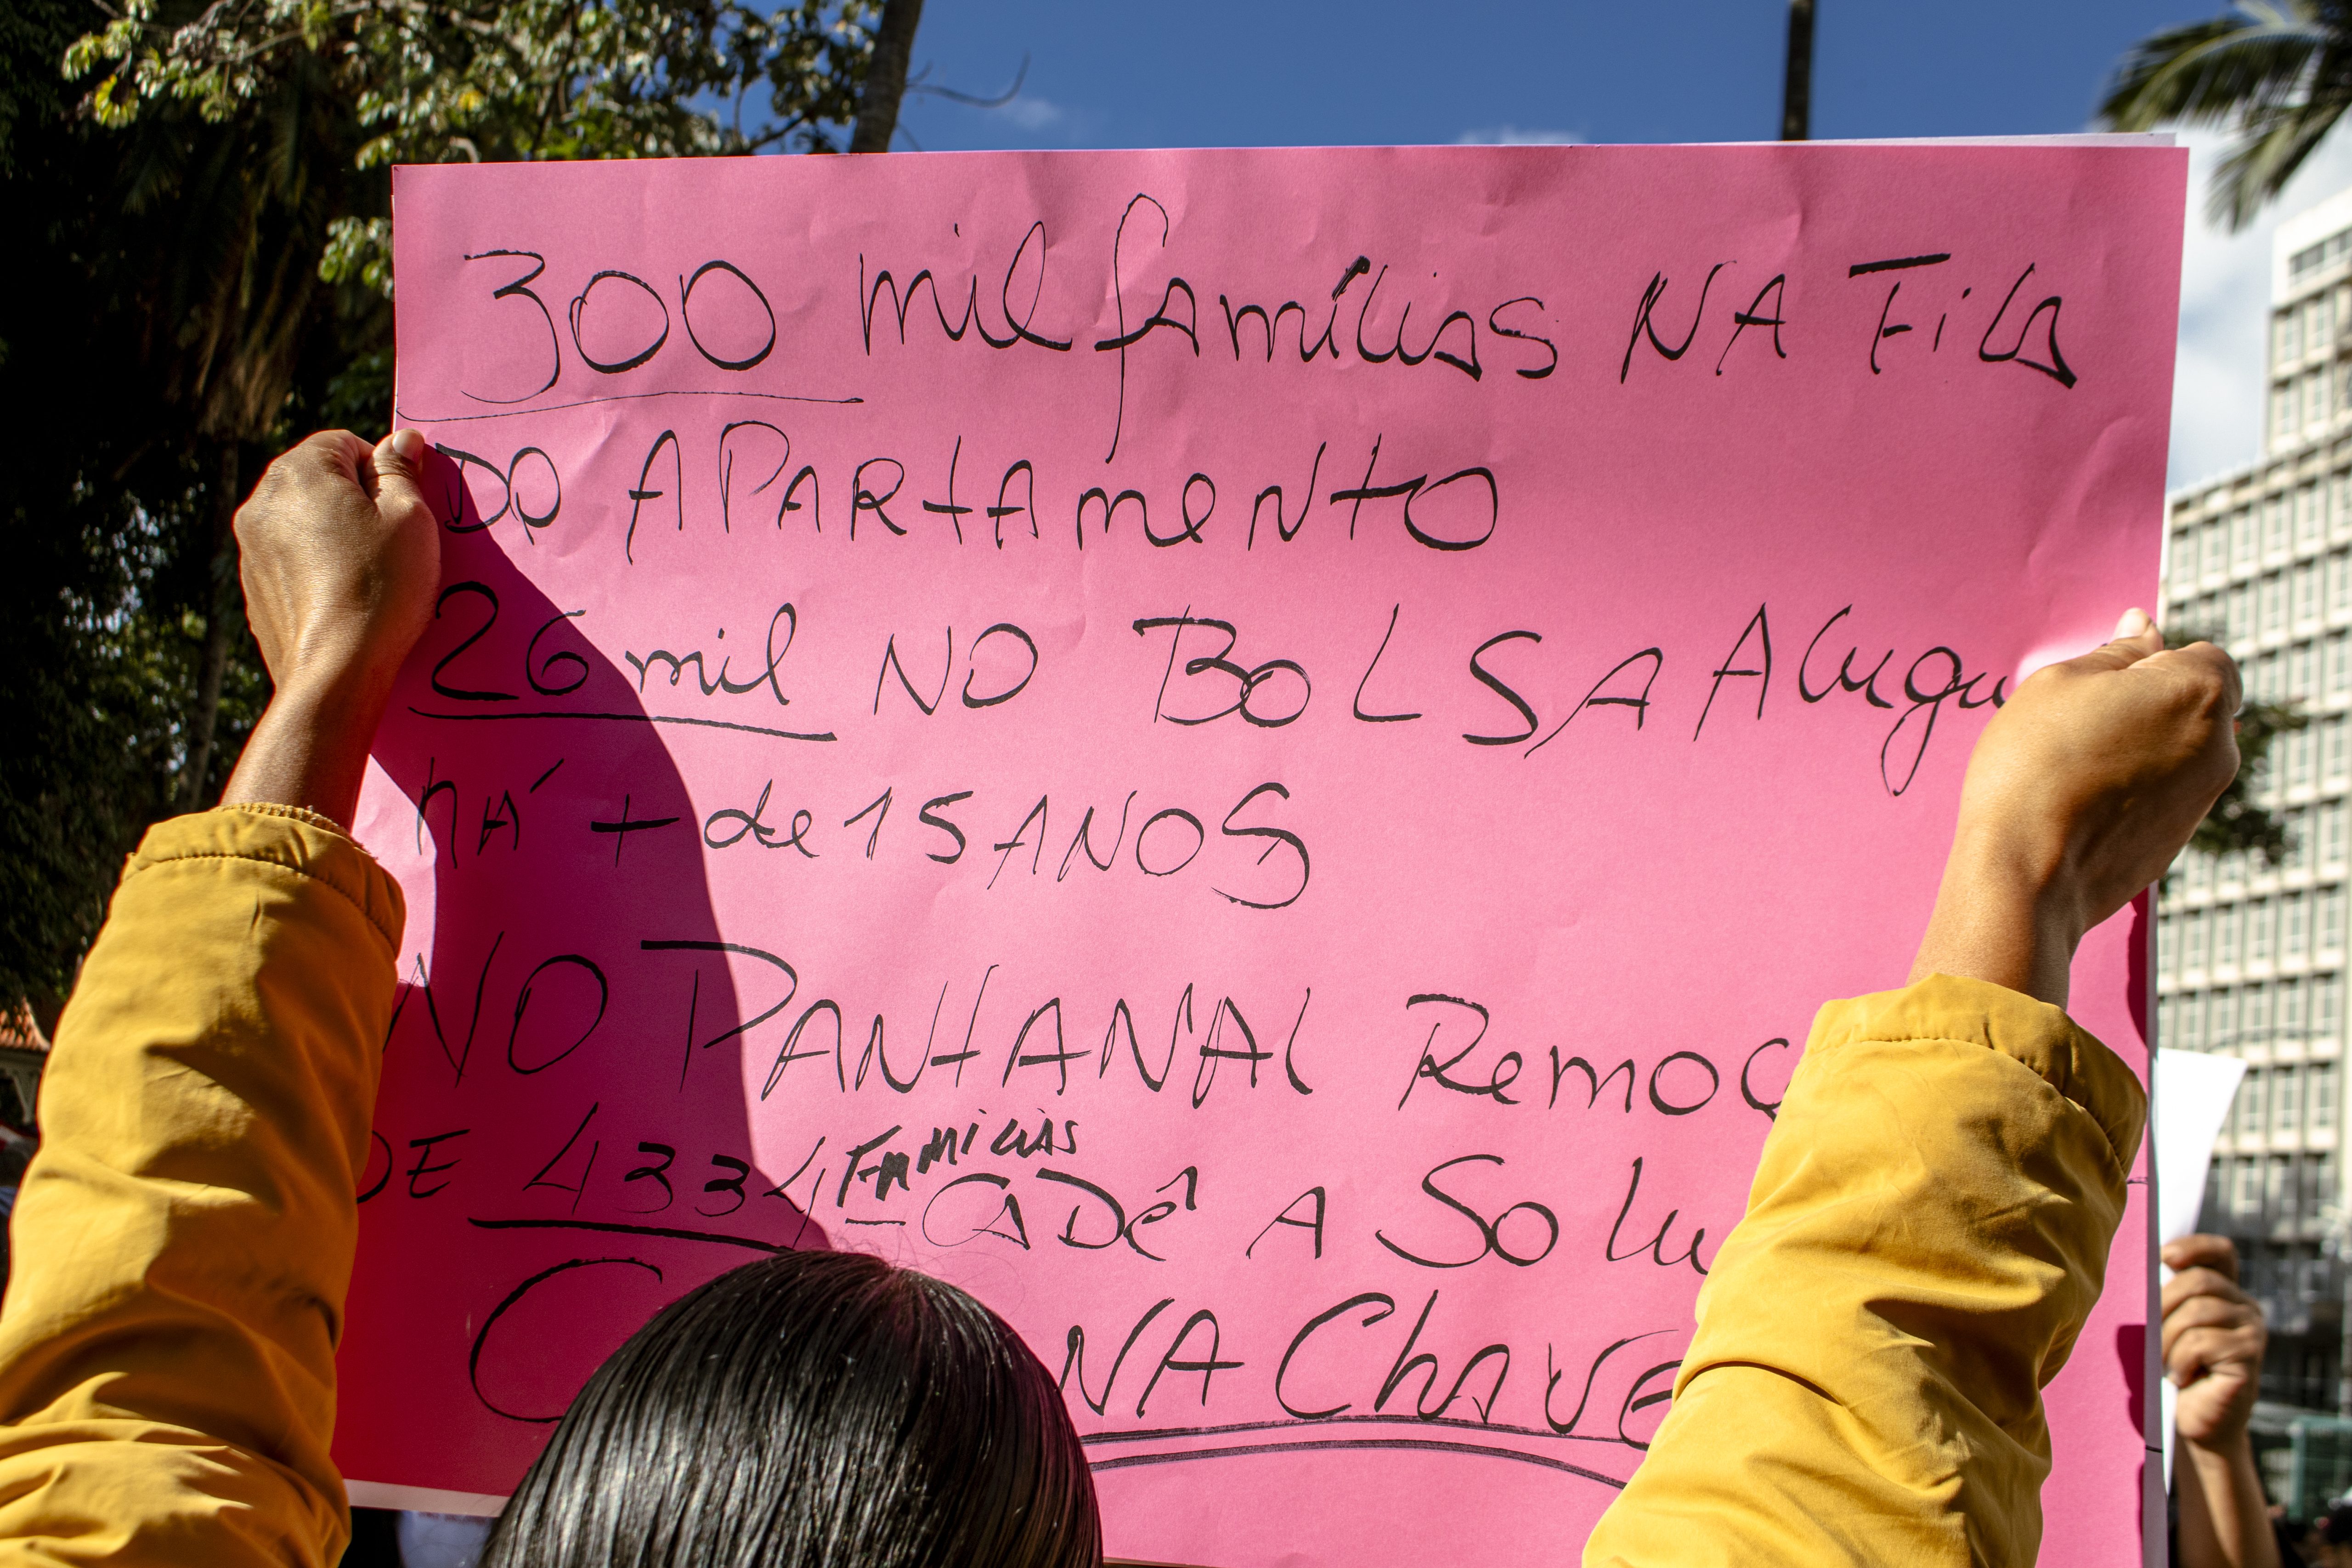 300 mil famílias NA Fila
DO APARtAmeNtO
26 mil NO BOLSA Alugu
há + de 15 ANOS
NO PANtANAl Remoç
DE 4334 FAMiliAS CADÊ A Solu
C NA ChAVE